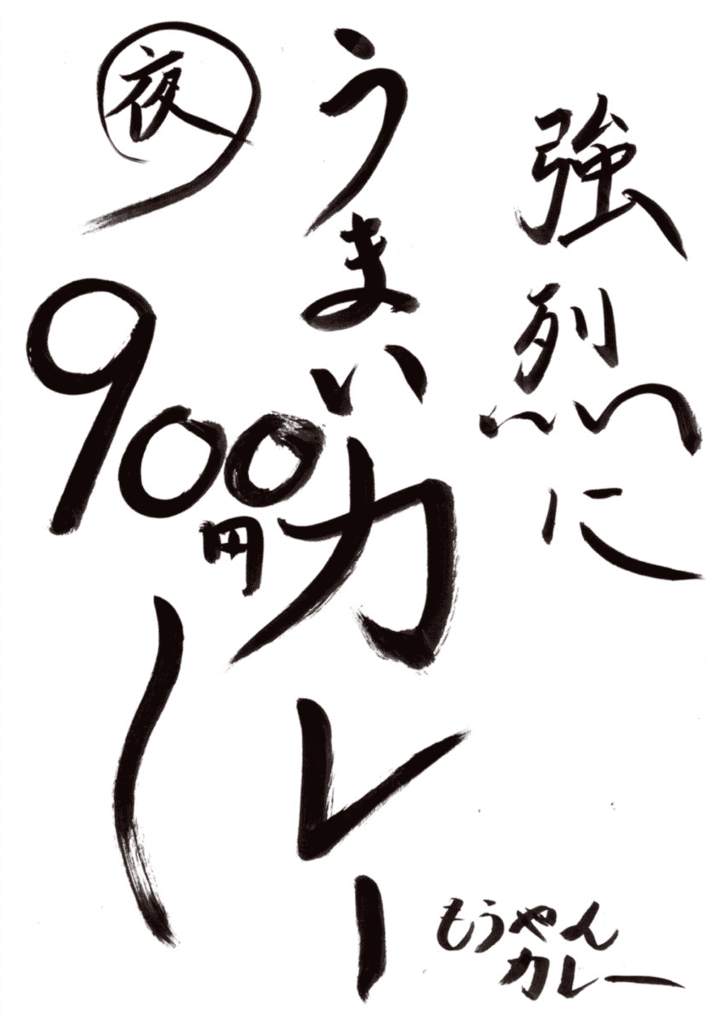 強烈に
うまいカレー
夜
900円〜
もうやん
カレー